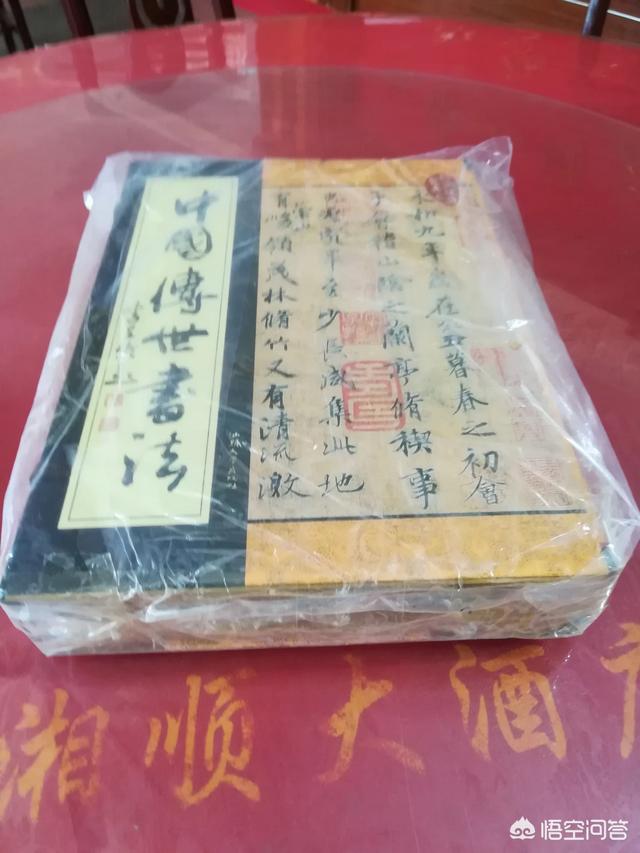 中國傳世書法
永和九年歲在癸丑暮春之初會
于會稽山陰之蘭亭脩稧事
也羣賢畢至少長咸集此地
有峻領茂林脩竹又有清流激
湘顺大酒
悟空问答